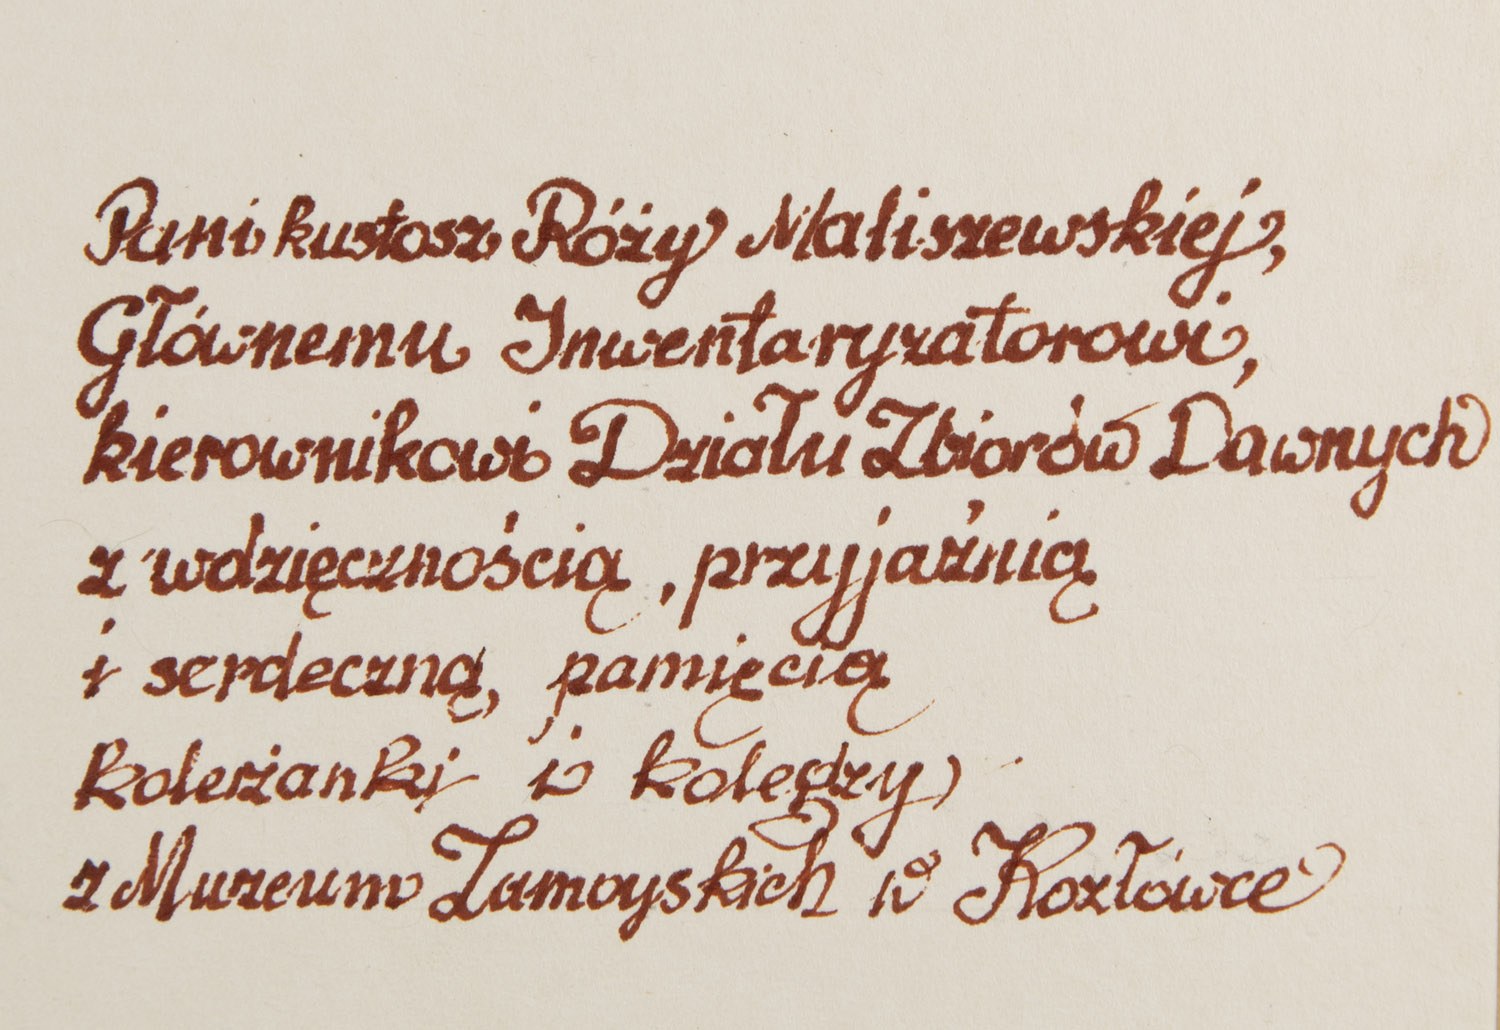 Pani kustosz Róży Maliszewskiej,
Głównemu Inwentaryzatorowi,
kierownikowi Działu Zbiorów Dawnych
z wdzięcznością, przyjaźnią
i serdeczną, pamięcią
koleżanki i koledzy
z Muzeum Zamoyskich w Kozłówce